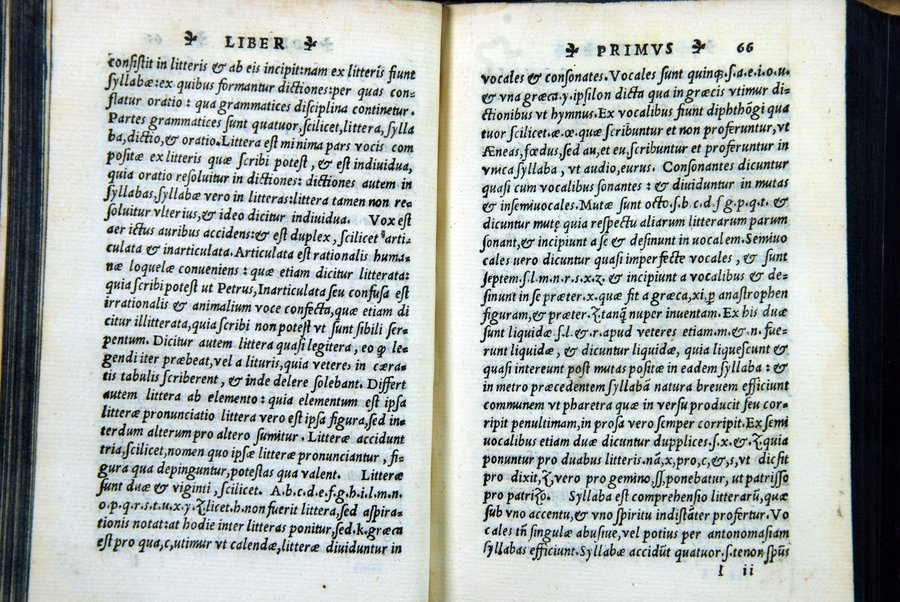 LIBER
consistit in litteris & ab eis incipit:nam ex litteris fiunt
syllabæ:ex quibus formantur dictiones:per quas con-
flatur oratio : qua grammatices disciplina continetur.
Partes grammatices sunt quatuor,scilicet,littera,sylla
ba,dictio,& oratio.Littera est minima pars vocis com
positæ ex litteris quæ scribi potest , & est indiuidua,
quia oratio resoluitur in dictiones: dictiones autem in
syllabas,syllabæ vero in litteras:littera tamen non re-
soluitur vlterius,& ideo dicitur indiuidua. Vox est
aer ictus auribus accidens:& est duplex, scilicet arti-
culata & inarticulata.Articulata est rationalis huma-
næ loquelæ conueniens : quæ etiam dicitur litterata:
quia scribi potest ut Petrus,Inarticulata seu confusa est
irrationalis & animalium voce confecta,quæ etiam di
citur illitterata,quia scribi non potest vt sunt sibili ser-
pentum. Dicitur autem littera quasi legitera , eo ꝙ le-
gendi iter præbeat,vel a lituris,quia veteres in cæra-
tis tabulis scriberent , & inde delere solebant. Differt
autem littera ab elemento : quia elementum est ipsa
litteræ pronunciatio littera vero est ipsa figura,sed in-
terdum alterum pro altero sumitur . Litteræ accidunt
tria,scilicet,nomen quo ipsæ litteræ pronunciantur , fi-
gura qua depinguntur,potestas qua valent. Litteræ
sunt duæ & viginti , scilicet. A.b.c.d.e.f.g.h.i.l.m.n.
o.p.q.r.s.t.u.x.y.ꝣ.licet.h.non fuerit littera,sed aspira-
tionis notat:at hodie inter litteras ponitur,sed.k.græca
est pro qua,c,utimur vt calendæ,litteræ diuiduntur in
PRIMVS 66
vocales & consonātes. Vocales sunt quinq;.s.a.e.i.o.u.
& vna græca.y.ipsilon dicta qua in græcis vtimur di-
ctionibus vt hymnus.Ex vocalibus fiunt diphthōgi qua
tuor scilicet.æ.œ.quæ scribuntur et non proferuntur,vt
Æneas,fœdus,sed au,et eu,scribuntur et proferuntur in
vnica syllaba , vt audio,eurus. Consonantes dicuntur
quasi cum vocalibus sonantes : & diuiduntur in mutas
& in semiuocales. Mutæ sunt octo,s.b.c.d.f.g.p.q.t. &
dicuntur mutę quia respectu aliarum litterarum parum
sonant,& incipiunt a se & desinunt in uocalem.Semiuo
cales uero dicuntur quasi imperfecte vocales , & sunt
septem.s.l.m.n.r.s.x.z. & incipiunt a vocalibus & de-
sinunt in se præter.x.quæ fit a græca,xi,p anastrophen
figuram,& præter.ꝣ.tanq̄ nuper inuentam. Ex his duæ
sunt liquidæ.s.l.& r.apud veteres etiam.m.& n.fue-
runt liquidæ , & dicuntur liquidæ, quia liquescunt &
quasi intereunt post mutas positæ in eadem syllaba : &
in metro præcedentem syllabā natura breuem efficiunt
communem vt pharetra quæ in versu producit seu cor-
ripit penultimam,in prosa vero semper corripit.Ex semi
uocalibus etiam duæ dicuntur dupplices.s.x.&.ꝣ.quia
ponuntur pro duabus litteris.nā,x,pro,c,&,s,vt dicsit
pro dixit,ꝣ,vero pro gemino,ss,ponebatur, ut patrisso
pro patriꝣo. Syllaba est comprehensio litterarū,quæ
sub vno accentu,& vno spiritu indistāter profertur.Vo
cales tn̄ singulæ abusiue,vel potius per antonomasiam
syllabas efficiunt.Syllabæ accidūt quatuor.s.tenor,spūs
I ii